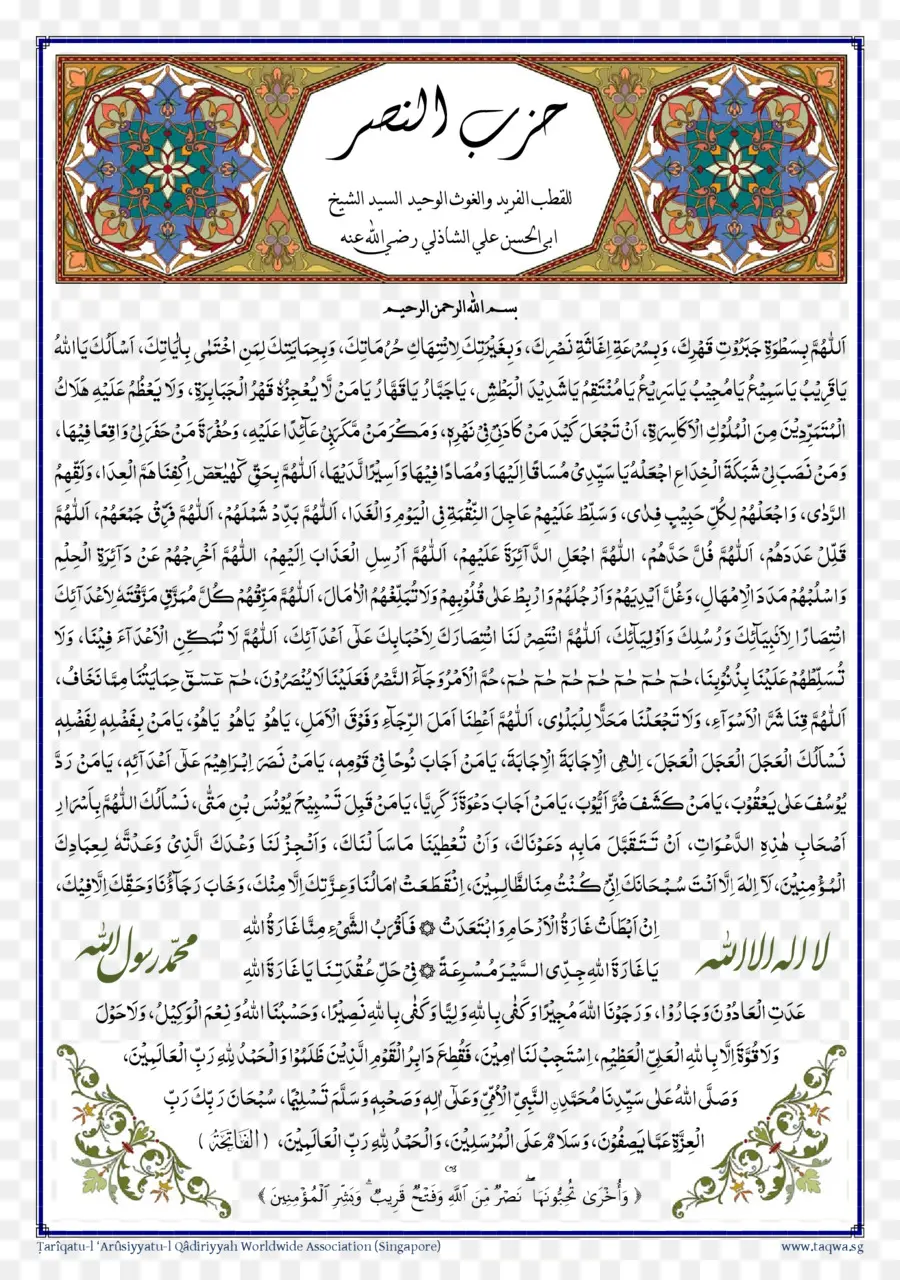 حزب النصر
للقطب الفريد والغوث الوحيد السيد الشيخ
ابى الحسن علي الشاذلي رضي الله عنه
بسم الله الرحمن الرحيم
اَللّٰهُمَّ بِسَطْوَةِ جَبَرُوْتِ قَهْرِكَ، وَبِسُرْعَةِ اِغَاثَةِ نَصْرِكَ، وَبِغَيْرَتِكَ لِانْتِهَاكِ حُرُمَاتِكَ، وَبِحِمَايَتِكَ لِمَنِ احْتَمٰى بِاٰيَاتِكَ، اَسْأَلُكَ يَا اَللهُ
يَاقَرِيْبُ يَاسَمِيْعُ يَامُجِيْبُ يَاسَرِيْعُ يَامُنْتَقِمُ يَاشَدِيْدَ الْبَطْشِ، يَاجَبَّارُ يَاقَهَّارُ يَامَنْ لَّا يُعْجِزُهٗ قَهْرُ الْجَبَابِرَةِ، وَلَا يَعْظُمُ عَلَيْهِ هَلَاكُ
الْمُتَمَرِّدِيْنَ مِنَ الْمُلُوْكِ الْاَكَاسِرَةِ، اَنْ تَجْعَلَ كَيْدَ مَنْ كَادَنِيْ فِيْ نَحْرِهٖ، وَمَكْرَ مَنْ مَّكَرَبِيْ عَآئِدًا عَلَيْهِ، وَحُفْرَةَ مَنْ حَفَرَلِيْ وَاقِعًا فِيْهَا،
وَمَنْ نَصَبَ لِيْ شَبَكَةَ الْخِدَاعِ اجْعَلْهُ يَا سَيِّدِيْ مُسَاقًا اِلَيْهَا وَمُصَادًا فِيْهَا وَاَسِيْرًا لَّدَيْهَا، اَللّٰهُمَّ بِحَقِّ كٓهٰيٰعٓصٓ اِكْفِنَا هَمَّ الْعِدَا، وَلَقِّهِمُ
الرَّدٰى، وَاجْعَلْهُمْ لِكُلِّ حَبِيْبٍ فِدٰى، وَسَلِّطْ عَلَيْهِمْ عَاجِلَ النِّقْمَةِ فِى الْيَوْمِ وَالْغَدَا، اَللّٰهُمَّ بَدِّدْ شَمْلَهُمْ، اَللّٰهُمَّ فَرِّقْ جَمْعَهُمْ، اَللّٰهُمَّ
قَلِّلْ عَدَدَهُمْ، اَللّٰهُمَّ فُلَّ حَدَّهُمْ، اَللّٰهُمَّ اجْعَلِ الدَّآئِرَةَ عَلَيْهِمْ، اَللّٰهُمَّ اَرْسِلِ الْعَذَابَ اِلَيْهِمْ، اَللّٰهُمَّ اَخْرِجْهُمْ عَنْ دَآئِرَةِ الْحِلْمِ
وَاسْلُبْهُمْ مَدَدَ الْاِمْهَالِ، وَغُلَّ اَيْدِيَهُمْ وَاَرْجُلَهُمْ وَارْبِطْ عَلٰى قُلُوْبِهِمْ وَلَا تُبَلِّغْهُمُ الْاٰمَالَ، اَللّٰهُمَّ مَزِّقْهُمْ كُلَّ مُمَزَّقٍ مَزَّقْتَهٗ لِاَعْدَآئِكَ
انْتِصَارًا لِاَنْبِيَآئِكَ وَرُسُلِكَ وَاَوْلِيَآئِكَ، اَللّٰهُمَّ انْتَصِرْ لَنَا انْتِصَارَكَ لِاَحْبَابِكَ عَلٰى اَعْدَآئِكَ، اَللّٰهُمَّ لَا تُمَكِّنِ الْاَعْدَآءَ فِيْنَا، وَلَا
تُسَلِّطْهُمْ عَلَيْنَا بِذُنُوْبِنَا، حٰمٓ حٰمٓ حٰمٓ حٰمٓ حٰمٓ حٰمٓ حٰمٓ، حُمَّ الْاَمْرُ وَجَآءَ النَّصْرُ فَعَلَيْنَا لَا يُنْصَرُوْنَ، حٰمٓ عٓسٓقٓ حِمَايَتُنَا مِمَّا نَخَافُ،
اَللّٰهُمَّ قِنَا شَرَّ الْاَسْوَآءِ، وَلَا تَجْعَلْنَا مَحَلًّا لِلْبَلْوٰى، اَللّٰهُمَّ اَعْطِنَا اَمَلَ الرَّجَآءِ وَفَوْقَ الْاَمَلِ، يَاهُوْ يَاهُوْ يَاهُوْ، يَامَنْ بِفَضْلِهٖ لِفَضْلِهٖ
نَسْأَلُكَ الْعَجَلَ الْعَجَلَ الْعَجَلَ، اِلٰهِى الْاِجَابَةَ الْاِجَابَةَ، يَامَنْ اَجَابَ نُوْحًا فِيْ قَوْمِهٖ، يَامَنْ نَصَرَ اِبْرَاهِيْمَ عَلٰى اَعْدَآئِهٖ، يَامَنْ رَدَّ
يُوْسُفَ عَلٰى يَعْقُوْبَ، يَامَنْ كَشَفَ ضُرَّ اَيُّوْبَ، يَامَنْ اَجَابَ دَعْوَةَ زَكَرِيَّا، يَامَنْ قَبِلَ تَسْبِيْحَ يُوْنُسَ بْنِ مَتّٰى، نَسْأَلُكَ اللّٰهُمَّ بِاَسْرَارِ
اَصْحَابِ هٰذِهِ الدَّعْوَاتِ، اَنْ تَتَقَبَّلَ مَابِهٖ دَعَوْنَاكَ، وَاَنْ تُعْطِيَنَا مَاسَاَلْنَاكَ، وَاَنْجِزْ لَنَا وَعْدَكَ الَّذِيْ وَعَدْتَّهٗ لِعِبَادِكَ
الْمُؤْمِنِيْنَ، لَآ اِلٰهَ اِلَّا اَنْتَ سُبْحَانَكَ اِنِّيْ كُنْتُ مِنَ الظَّالِمِيْنَ، اِنْقَطَعَتْ اٰمَالُنَا وَعِزَّتِكَ اِلَّا مِنْكَ، وَخَابَ رَجَآؤُنَا وَحَقِّكَ اِلَّا فِيْكَ،
اِنْ اَبْطَاَتْ غَارَةُ الْاَرْحَامِ وَابْتَعَدَتْ ۞ فَاَقْرَبُ الشَّيْءِ مِنَّا غَارَةُ اللهِ
لا اله الا الله
محمد رسول الله
يَا غَارَةَ اللهِ جِدِّى السَّيْرَ مُسْرِعَةً ۞ فِيْ حَلِّ عُقْدَتِنَا يَا غَارَةَ اللهِ
عَدَتِ الْعَادُوْنَ وَجَارُوْا، وَرَجَوْنَا اللهَ مُجِيْرًا وَكَفٰى بِاللهِ وَلِيًّا وَكَفٰى بِاللهِ نَصِيْرًا، وَحَسْبُنَا اللهُ وَنِعْمَ الْوَكِيْلُ، وَلَا حَوْلَ
وَلَا قُوَّةَ اِلَّا بِاللهِ الْعَلِيِّ الْعَظِيْمِ، اِسْتَجِبْ لَنَا اٰمِيْنَ، فَقُطِعَ دَابِرُ الْقَوْمِ الَّذِيْنَ ظَلَمُوْا وَالْحَمْدُ لِلّٰهِ رَبِّ الْعَالَمِيْنَ،
وَصَلَّى اللهُ عَلٰى سَيِّدِنَا مُحَمَّدِنِ النَّبِيِّ الْاُمِّيِّ وَعَلٰٓى اٰلِهٖ وَصَحْبِهٖ وَسَلَّمَ تَسْلِيْمًا، سُبْحَانَ رَبِّكَ رَبِّ
الْعِزَّةِ عَمَّا يَصِفُوْنَ، وَسَلَامٌ عَلَى الْمُرْسَلِيْنَ، وَالْحَمْدُ لِلّٰهِ رَبِّ الْعَالَمِيْنَ، ( اَلْفَاتِحَةُ )
﴿ وَأُخْرَىٰ تُحِبُّونَهَا ۖ نَصْرٌ مِّنَ اللَّهِ وَفَتْحٌ قَرِيبٌ ۗ وَبَشِّرِ الْمُؤْمِنِينَ ﴾
Ṭarîqatu-l ‘Arûsiyyatu-l Qâdiriyyah Worldwide Association (Singapore)
www.taqwa.sg